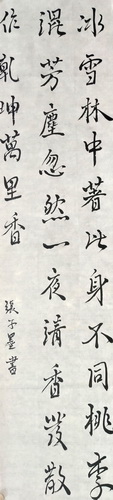 冰雪林中著此身不同桃李
混芳塵忽然一夜清香發散
作乾坤萬里香
張子墨書